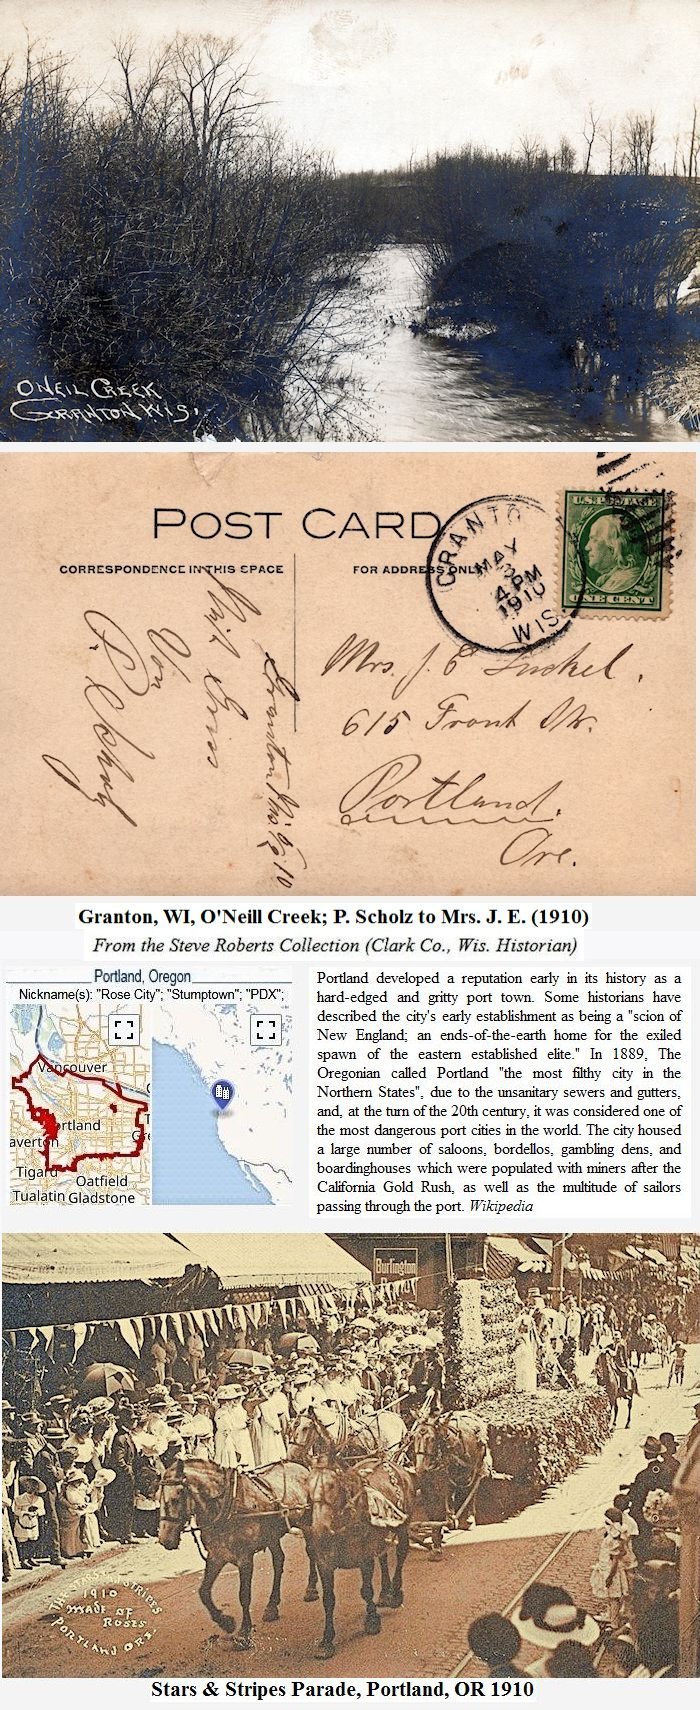 ONEIL CREEK
GRANTON WIS.
POST CARD
CORRESPONDENCE IN THIS SPACE
FOR ADDRESS ONLY
GRANTO
MAY
4 PM
1910
WIS.
U.S. POSTAGE
ONE CENT
Mrs. J. E
615 Front Str.
Portland.
Ore.
Granton Wis
Von
P. Scholz
Granton, WI, O'Neill Creek; P. Scholz to Mrs. J. E. (1910)
From the Steve Roberts Collection (Clark Co., Wis. Historian)
Portland, Oregon
Nickname(s): "Rose City"; "Stumptown"; "PDX";
Vancouver
ortland
averton
Gre
Tigard
Oatfield
Tualatin Gladstone
Portland developed a reputation early in its history as a
hard-edged and gritty port town. Some historians have
described the city's early establishment as being a "scion of
New England; an ends-of-the-earth home for the exiled
spawn of the eastern established elite." In 1889, The
Oregonian called Portland "the most filthy city in the
Northern States", due to the unsanitary sewers and gutters,
and, at the turn of the 20th century, it was considered one of
the most dangerous port cities in the world. The city housed
a large number of saloons, bordellos, gambling dens, and
boardinghouses which were populated with miners after the
California Gold Rush, as well as the multitude of sailors
passing through the port. Wikipedia
Burlington
THE STARS AND STRIPES
1910
MADE OF
ROSES
PORTLAND ORE.
Stars & Stripes Parade, Portland, OR 1910